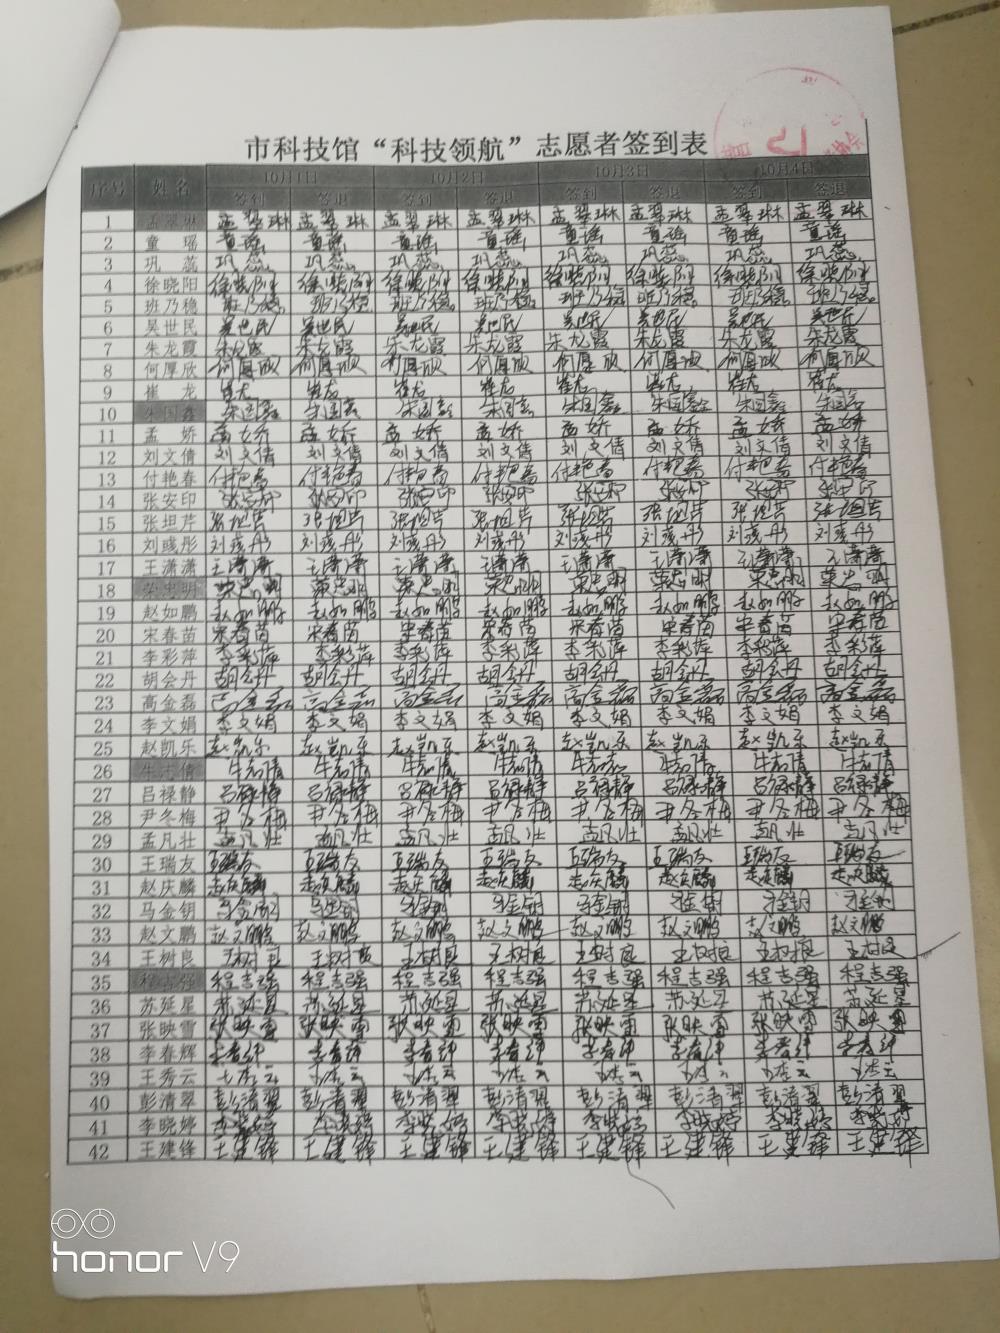 市科技馆“科技领航”志愿者签到表
序号 姓名 10月1日 10月2日 10月3日 10月4日
签到 签退 签到 签退 签到 签退 签到 签退
1 孟翠琳 孟翠琳 孟翠琳 孟翠琳 孟翠琳 孟翠琳 孟翠琳 孟翠琳 孟翠琳
2 童瑶 童瑶 童瑶 童瑶 童瑶 童瑶 童瑶 童瑶 童瑶
3 巩蕊 巩蕊 巩蕊 巩蕊 巩蕊 巩蕊 巩蕊 巩蕊 巩蕊
4 徐晓阳 徐晓阳 徐晓阳 徐晓阳 徐晓阳 徐晓阳 徐晓阳 徐晓阳 徐晓阳
5 班乃稳 班乃稳 班乃稳 班乃稳 班乃稳 班乃稳 班乃稳 班乃稳 班乃稳
6 吴世民 吴世民 吴世民 吴世民 吴世民 吴世民 吴世民 吴世民 吴世民
7 朱龙霞 朱龙霞 朱龙霞 朱龙霞 朱龙霞 朱龙霞 朱龙霞 朱龙霞 朱龙霞
8 何厚欣 何厚欣 何厚欣 何厚欣 何厚欣 何厚欣 何厚欣 何厚欣 何厚欣
9 崔龙 崔龙 崔龙 崔龙 崔龙 崔龙 崔龙 崔龙 崔龙
10 朱国鑫 朱国鑫 朱国鑫 朱国鑫 朱国鑫 朱国鑫 朱国鑫 朱国鑫 朱国鑫
11 孟娇 孟娇 孟娇 孟娇 孟娇 孟娇 孟娇 孟娇 孟娇
12 刘文倩 刘文倩 刘文倩 刘文倩 刘文倩 刘文倩 刘文倩 刘文倩 刘文倩
13 付艳春 付艳春 付艳春 付艳春 付艳春 付艳春 付艳春 付艳春 付艳春
14 张安印 张安印 张安印 张安印 张安印 张安印 张安印 张安印 张安印
15 张坦芹 张坦芹 张坦芹 张坦芹 张坦芹 张坦芹 张坦芹 张坦芹 张坦芹
16 刘彧彤 刘彧彤 刘彧彤 刘彧彤 刘彧彤 刘彧彤 刘彧彤 刘彧彤 刘彧彤
17 王潇潇 王潇潇 王潇潇 王潇潇 王潇潇 王潇潇 王潇潇 王潇潇 王潇潇
18 荣忠明 荣忠明 荣忠明 荣忠明 荣忠明 荣忠明 荣忠明 荣忠明 荣忠明
19 赵如鹏 赵如鹏 赵如鹏 赵如鹏 赵如鹏 赵如鹏 赵如鹏 赵如鹏 赵如鹏
20 宋春苗 宋春苗 宋春苗 宋春苗 宋春苗 宋春苗 宋春苗 宋春苗 宋春苗
21 李彩萍 李彩萍 李彩萍 李彩萍 李彩萍 李彩萍 李彩萍 李彩萍 李彩萍
22 胡会丹 胡会丹 胡会丹 胡会丹 胡会丹 胡会丹 胡会丹 胡会丹 胡会丹
23 高金磊 高金磊 高金磊 高金磊 高金磊 高金磊 高金磊 高金磊 高金磊
24 李文娟 李文娟 李文娟 李文娟 李文娟 李文娟 李文娟 李文娟 李文娟
25 赵凯乐 赵凯乐 赵凯乐 赵凯乐 赵凯乐 赵凯乐 赵凯乐 赵凯乐 赵凯乐
26 牛志倩 牛志倩 牛志倩 牛志倩 牛志倩 牛志倩 牛志倩 牛志倩 牛志倩
27 吕禄静 吕禄静 吕禄静 吕禄静 吕禄静 吕禄静 吕禄静 吕禄静 吕禄静
28 尹冬梅 尹冬梅 尹冬梅 尹冬梅 尹冬梅 尹冬梅 尹冬梅 尹冬梅 尹冬梅
29 孟凡壮 孟凡壮 孟凡壮 孟凡壮 孟凡壮 孟凡壮 孟凡壮 孟凡壮 孟凡壮
30 王瑞友 王瑞友 王瑞友 王瑞友 王瑞友 王瑞友 王瑞友 王瑞友 王瑞友
31 赵庆麟 赵庆麟 赵庆麟 赵庆麟 赵庆麟 赵庆麟 赵庆麟 赵庆麟 赵庆麟
32 马金钥 马金钥 马金钥 马金钥 马金钥 马金钥 马金钥 马金钥 马金钥
33 赵文鹏 赵文鹏 赵文鹏 赵文鹏 赵文鹏 赵文鹏 赵文鹏 赵文鹏 赵文鹏
34 王树良 王树良 王树良 王树良 王树良 王树良 王树良 王树良 王树良
35 程吉强 程吉强 程吉强 程吉强 程吉强 程吉强 程吉强 程吉强 程吉强
36 苏延星 苏延星 苏延星 苏延星 苏延星 苏延星 苏延星 苏延星 苏延星
37 张映雪 张映雪 张映雪 张映雪 张映雪 张映雪 张映雪 张映雪 张映雪
38 李春辉 李春辉 李春辉 李春辉 李春辉 李春辉 李春辉 李春辉 李春辉
39 王秀云 王秀云 王秀云 王秀云 王秀云 王秀云 王秀云 王秀云 王秀云
40 彭清翠 彭清翠 彭清翠 彭清翠 彭清翠 彭清翠 彭清翠 彭清翠 彭清翠
41 李晓婷 李晓婷 李晓婷 李晓婷 李晓婷 李晓婷 李晓婷 李晓婷 李晓婷
42 王建锋 王建锋 王建锋 王建锋 王建锋 王建锋 王建锋 王建锋 王建锋
honor V9